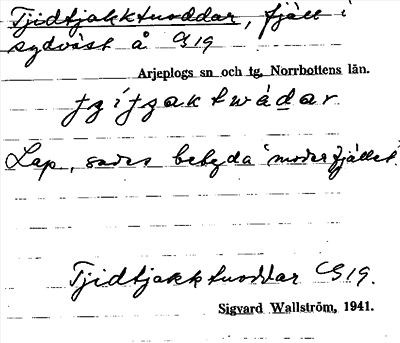 Tjidtjakktuoddar, fjäll i
sydväst å G 19
Arjeplogs sn och tg, Norrbottens län.
Lap, sades betyda "moderfjället"
Tjidtjakktuoddar G 19.
Sigvard Wallström, 1941.